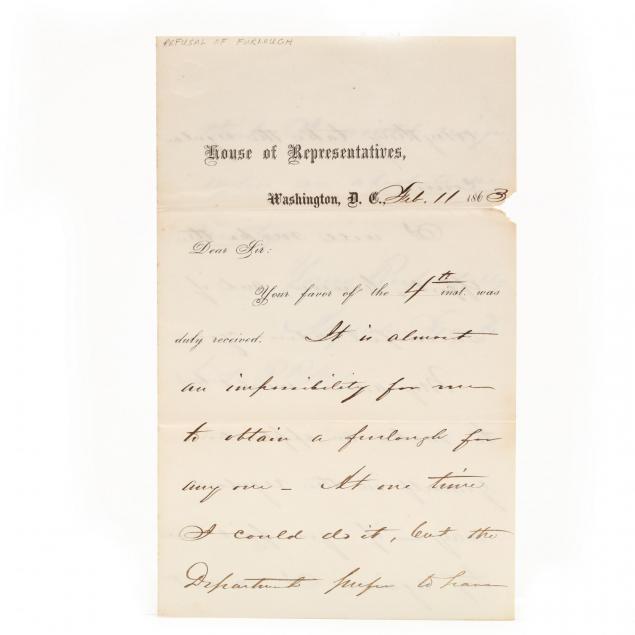 REFUSAL OF FURLOUGH
House of Representatives,
Washington, D. C., Feb. 11 1863
Dear Sir:
Your favor of the 4th inst. was
duly received. It is almost
an impossibility for me
to obtain a furlough for
any one – At one time
I could do it, but the
Department to have